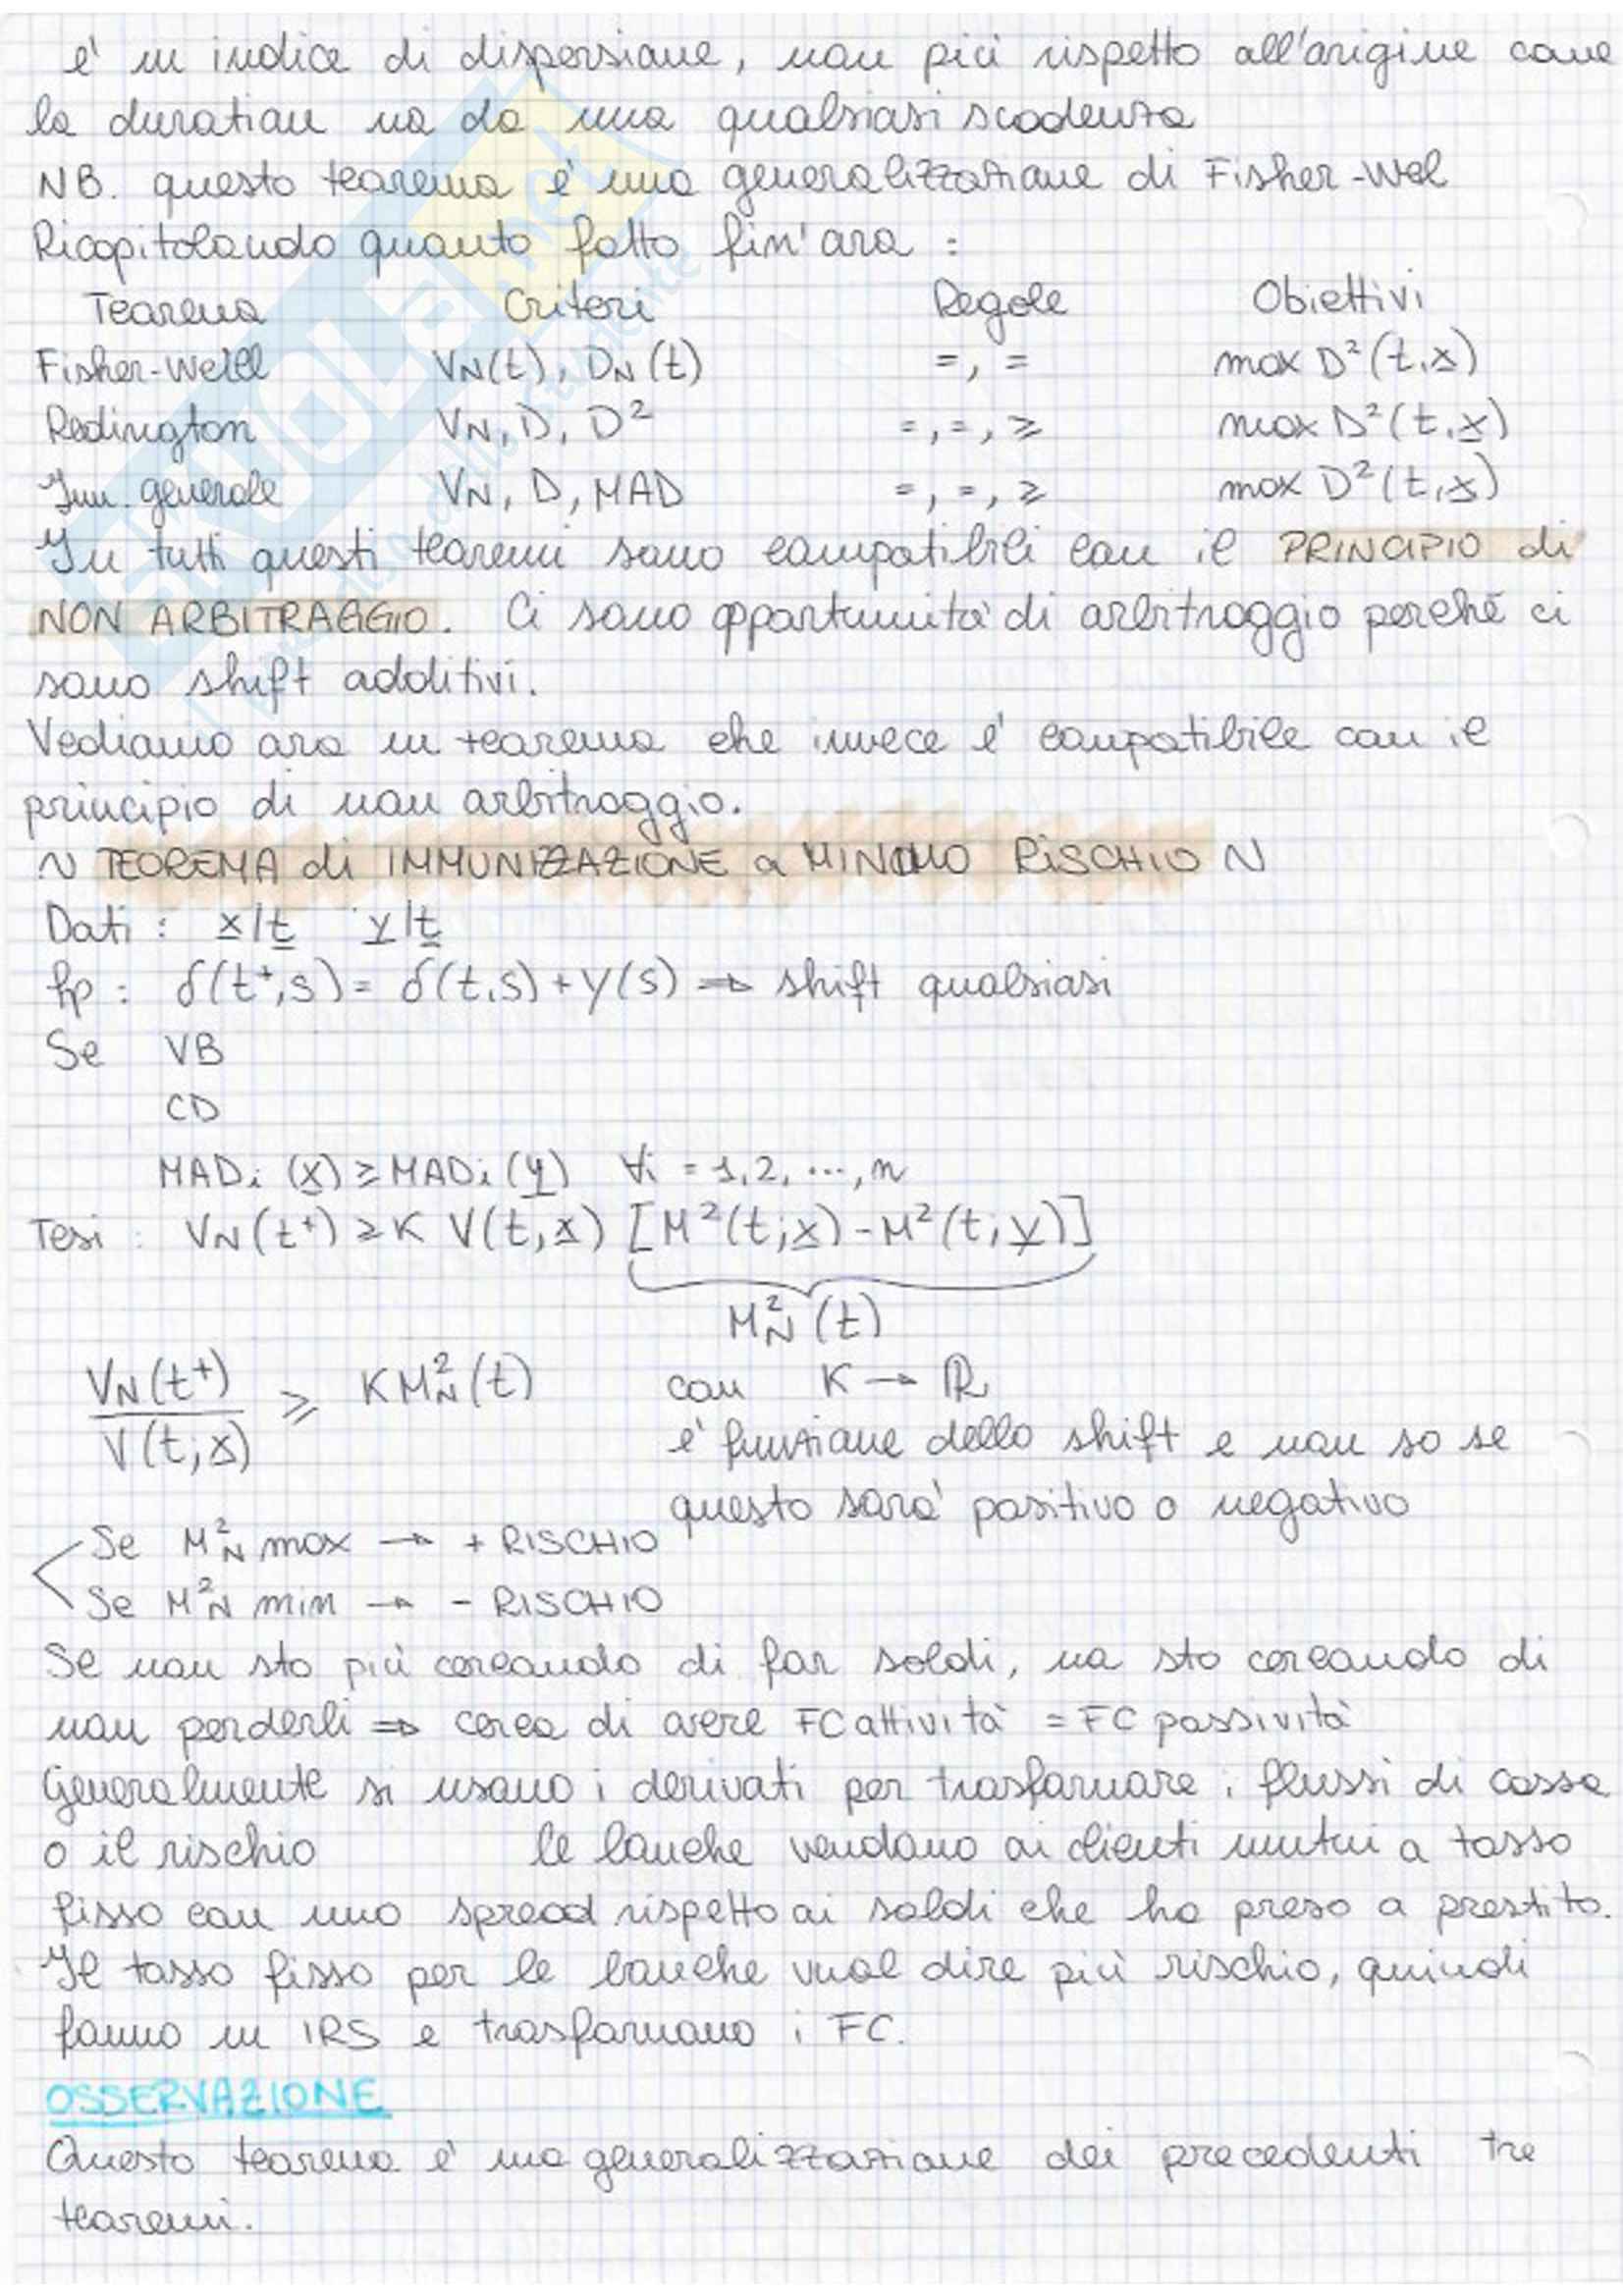 è un indice di dispersione, non più rispetto all'origine come
la duration ma da una qualsiasi scadenza
NB. questo teorema è una generalizzazione di Fisher-Wel
Ricapitolando quanto fatto fin'ora :
Teorema Criteri Regole Obiettivi
Fisher-Weill VN(t), DN(t) =, = max D²(t,x)
Redington VN, D, D² =, =, ≥ max D²(t,x)
Imm. generale VN, D, MAD =, =, ≥ max D²(t,x)
In tutti questi teoremi sono compatibili con il PRINCIPIO di
NON ARBITRAGGIO. Ci sono opportunità di arbitraggio perché ci
sono shift additivi.
Vediamo ora un teorema che invece è compatibile con il
principio di non arbitraggio.
N TEOREMA di IMMUNIZZAZIONE a MINIMO RISCHIO N
Dati : x/t y/t
hp : δ(t⁺,s) = δ(t,s) + Y(s) ⇒ shift qualsiasi
Se VB
CD
MADi (x) ≥ MADi (y) ∀i = 1,2, ..., n
Tesi : VN(t⁺) ≥ K V(t,x) [M²(t;x) - M²(t;y)]
M²N (t)
VN(t⁺) / V(t;x) ≥ K M²N(t) con K → ℝ
è funzione dello shift e non so se
questo sarà positivo o negativo
Se M²N max → + RISCHIO
Se M²N min → - RISCHIO
Se non sto più cercando di far soldi, ma sto cercando di
non perderli ⇒ cerco di avere FC attività = FC passività
Generalmente si usano i derivati per trasformare i flussi di cassa
o il rischio le banche vendono ai clienti mutui a tasso
fisso con uno spread rispetto ai soldi che ha preso a prestito.
Il tasso fisso per le banche vuol dire più rischio, quindi
fanno un IRS e trasformano i FC.
OSSERVAZIONE
Questo teorema è una generalizzazione dei precedenti tre
teoremi.